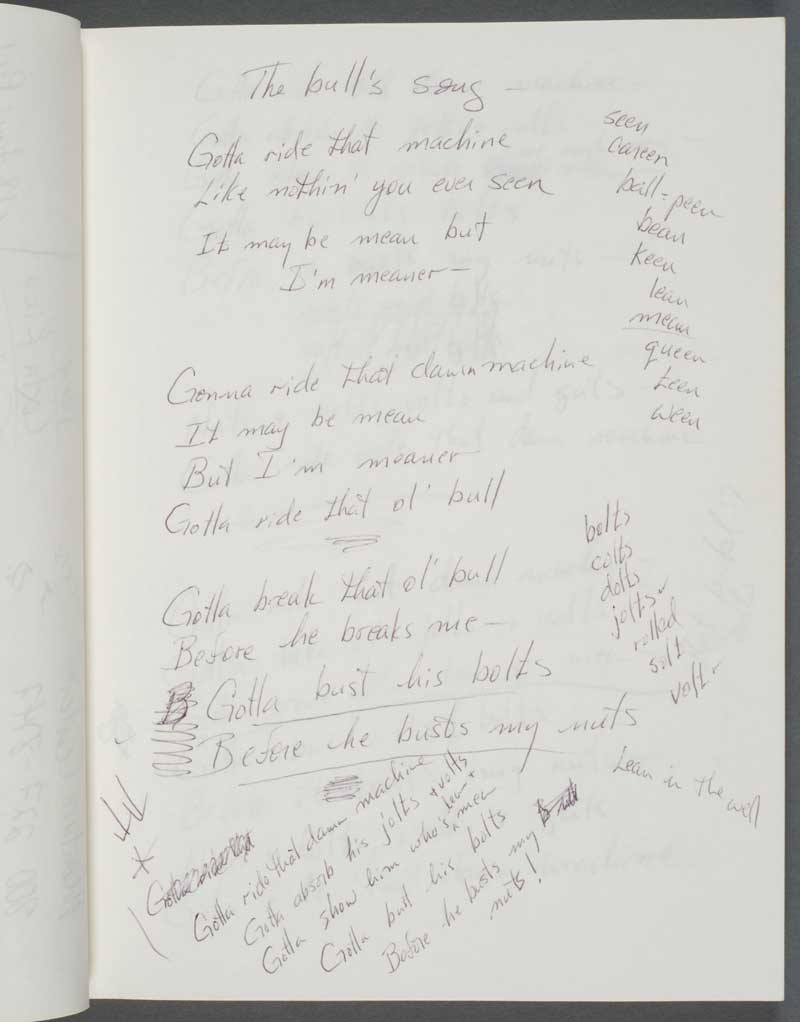 The bull's song —
Gotta ride that machine
Like nothin' you ever seen
It may be mean but
I'm meaner —
seen
careen
ball-peen
bean
keen
lean
mean
queen
teen
ween
Gonna ride that damn machine
It may be mean
But I'm meaner
Gotta ride that ol' bull
Gotta break that ol' bull
Before he breaks me —
Gotta bust his bolts
Before he busts my nuts
bolts
colts
dolts
jolts
rolled
solt
volt
Lean in the well
Gotta ride that damn machine
Gotta absorb his jolts + volts
Gotta show him who's lean + mean
Gotta bust his bolts
Before he busts my
nuts!